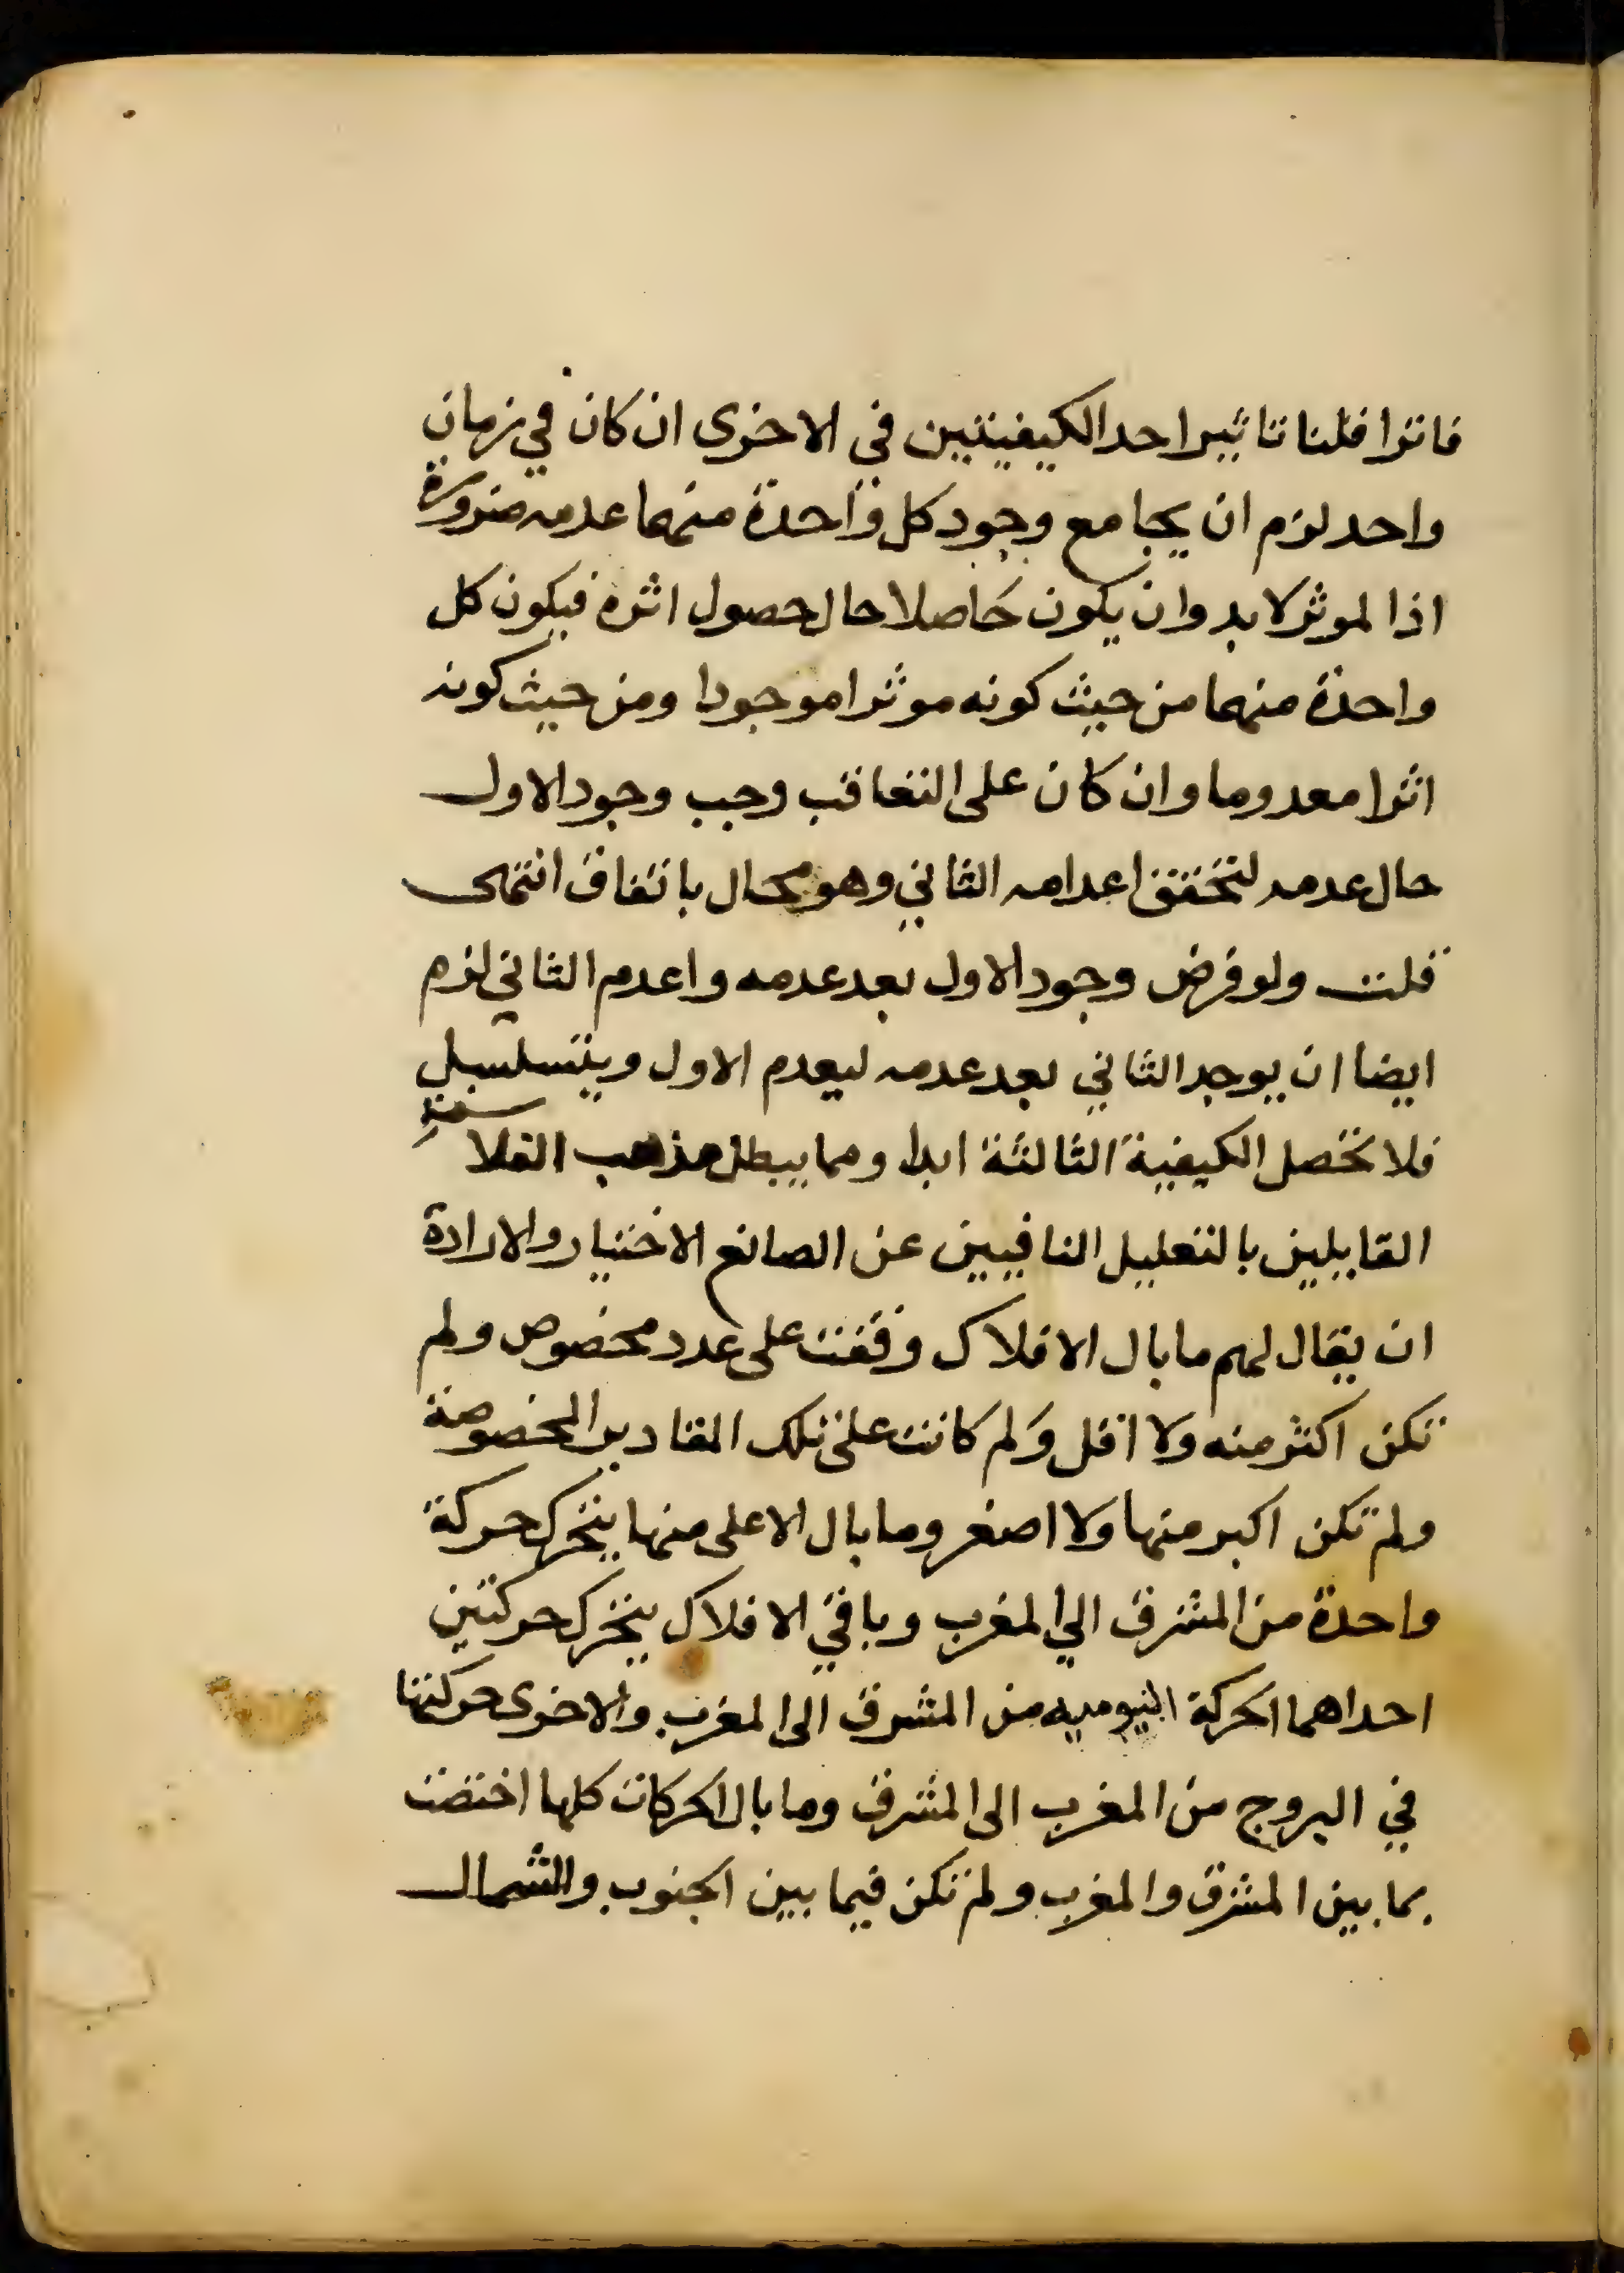 فاترا قلنا تاثير احد الكيفيتين في الاخرى ان كان في زمان
واحد لزم ان يجامع وجود كل واحدة منهما عدمه ضرورة
اذا لموثر لا بد وان يكون حاصلا حال حصول اثره فيكون كل
واحدة منهما من حيث كونه موثرا موجودا ومن حيث كونه
اثرا معدوما وان كان على التعاقب وجب وجود الاول
حال عدمه لتحقق اعدامه الثاني وهو محال باتفاق انتهى
قلت ولو فرض وجود الاول بعد عدمه واعدم الثاني لزم
ايضا ان يوجد الثاني بعد عدمه ليعدم الاول ويتسلسل
فلا تحصل الكيفية الثالثة ابدا ومما يبطل مذهب الفلاسفة
القايلين بالتعليل النافيين عن الصانع الاختيار والارادة
ان يقال لهم ما بال الافلاك وقفت على عدد مخصوص ولم
تكن اكثر منه ولا اقل ولم كانت على تلك المقادير المخصوصة
ولم تكن اكبر منها ولا اصغر وما بال الاعلى منها يتحرك حركة
واحدة من المشرق الي المغرب وباقي الافلاك يتحرك حركتين
احداهما الحركة اليوميه من المشرق الى المغرب والاخرى حركتها
في البروج من المغرب الى المشرق وما بال الحركات كلها اختصت
بما بين المشرق والمغرب ولم تكن فيما بين الجنوب والشمال